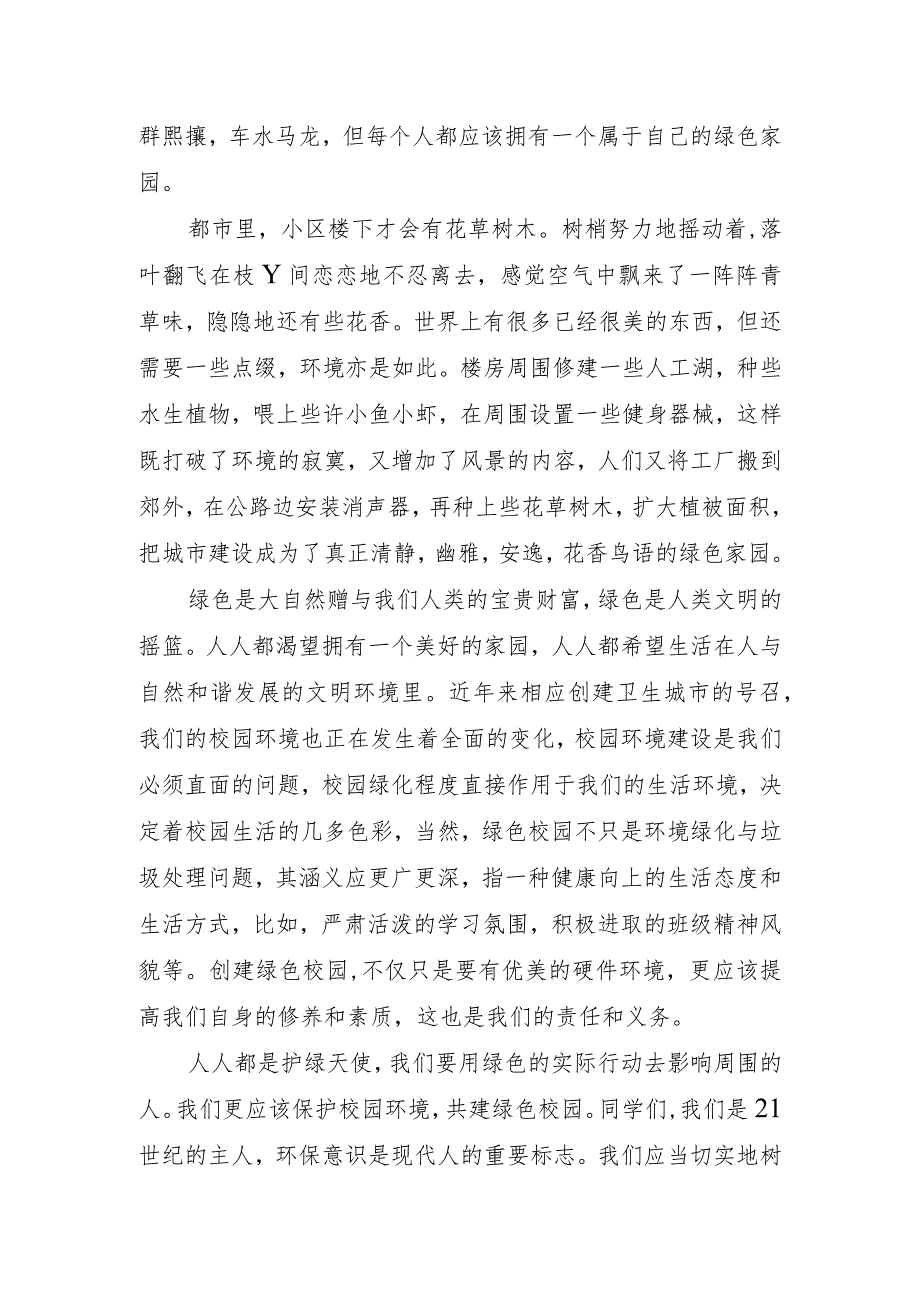 群熙攘，车水马龙，但每个人都应该拥有一个属于自己的绿色家
园。
都市里，小区楼下才会有花草树木。树梢努力地摇动着,落
叶翻飞在枝Y间恋恋地不忍离去，感觉空气中飘来了一阵阵青
草味，隐隐地还有些花香。世界上有很多已经很美的东西，但还
需要一些点缀，环境亦是如此。楼房周围修建一些人工湖，种些
水生植物，喂上些许小鱼小虾，在周围设置一些健身器械，这样
既打破了环境的寂寞，又增加了风景的内容，人们又将工厂搬到
郊外，在公路边安装消声器，再种上些花草树木，扩大植被面积，
把城市建设成为了真正清静，幽雅，安逸，花香鸟语的绿色家园。
绿色是大自然赠与我们人类的宝贵财富，绿色是人类文明的
摇篮。人人都渴望拥有一个美好的家园，人人都希望生活在人与
自然和谐发展的文明环境里。近年来相应创建卫生城市的号召，
我们的校园环境也正在发生着全面的变化，校园环境建设是我们
必须直面的问题，校园绿化程度直接作用于我们的生活环境，决
定着校园生活的几多色彩，当然，绿色校园不只是环境绿化与垃
圾处理问题，其涵义应更广更深，指一种健康向上的生活态度和
生活方式，比如，严肃活泼的学习氛围，积极进取的班级精神风
貌等。创建绿色校园,不仅只是要有优美的硬件环境，更应该提
高我们自身的修养和素质，这也是我们的责任和义务。
人人都是护绿天使，我们要用绿色的实际行动去影响周围的
人。我们更应该保护校园环境，共建绿色校园。同学们,我们是21
世纪的主人，环保意识是现代人的重要标志。我们应当切实地树